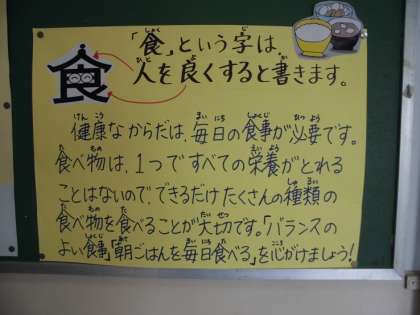 「食」という字は、
人を良くすると書きます。
食
健康なからだは、毎日の食事が必要です。
食べ物は、1つですべての栄養がとれる
ことはないので、できるだけたくさんの種類の
食べ物を食べることが大切です。「バランスの
よい食事」「朝ごはんを毎日食べる」を心がけましょう!